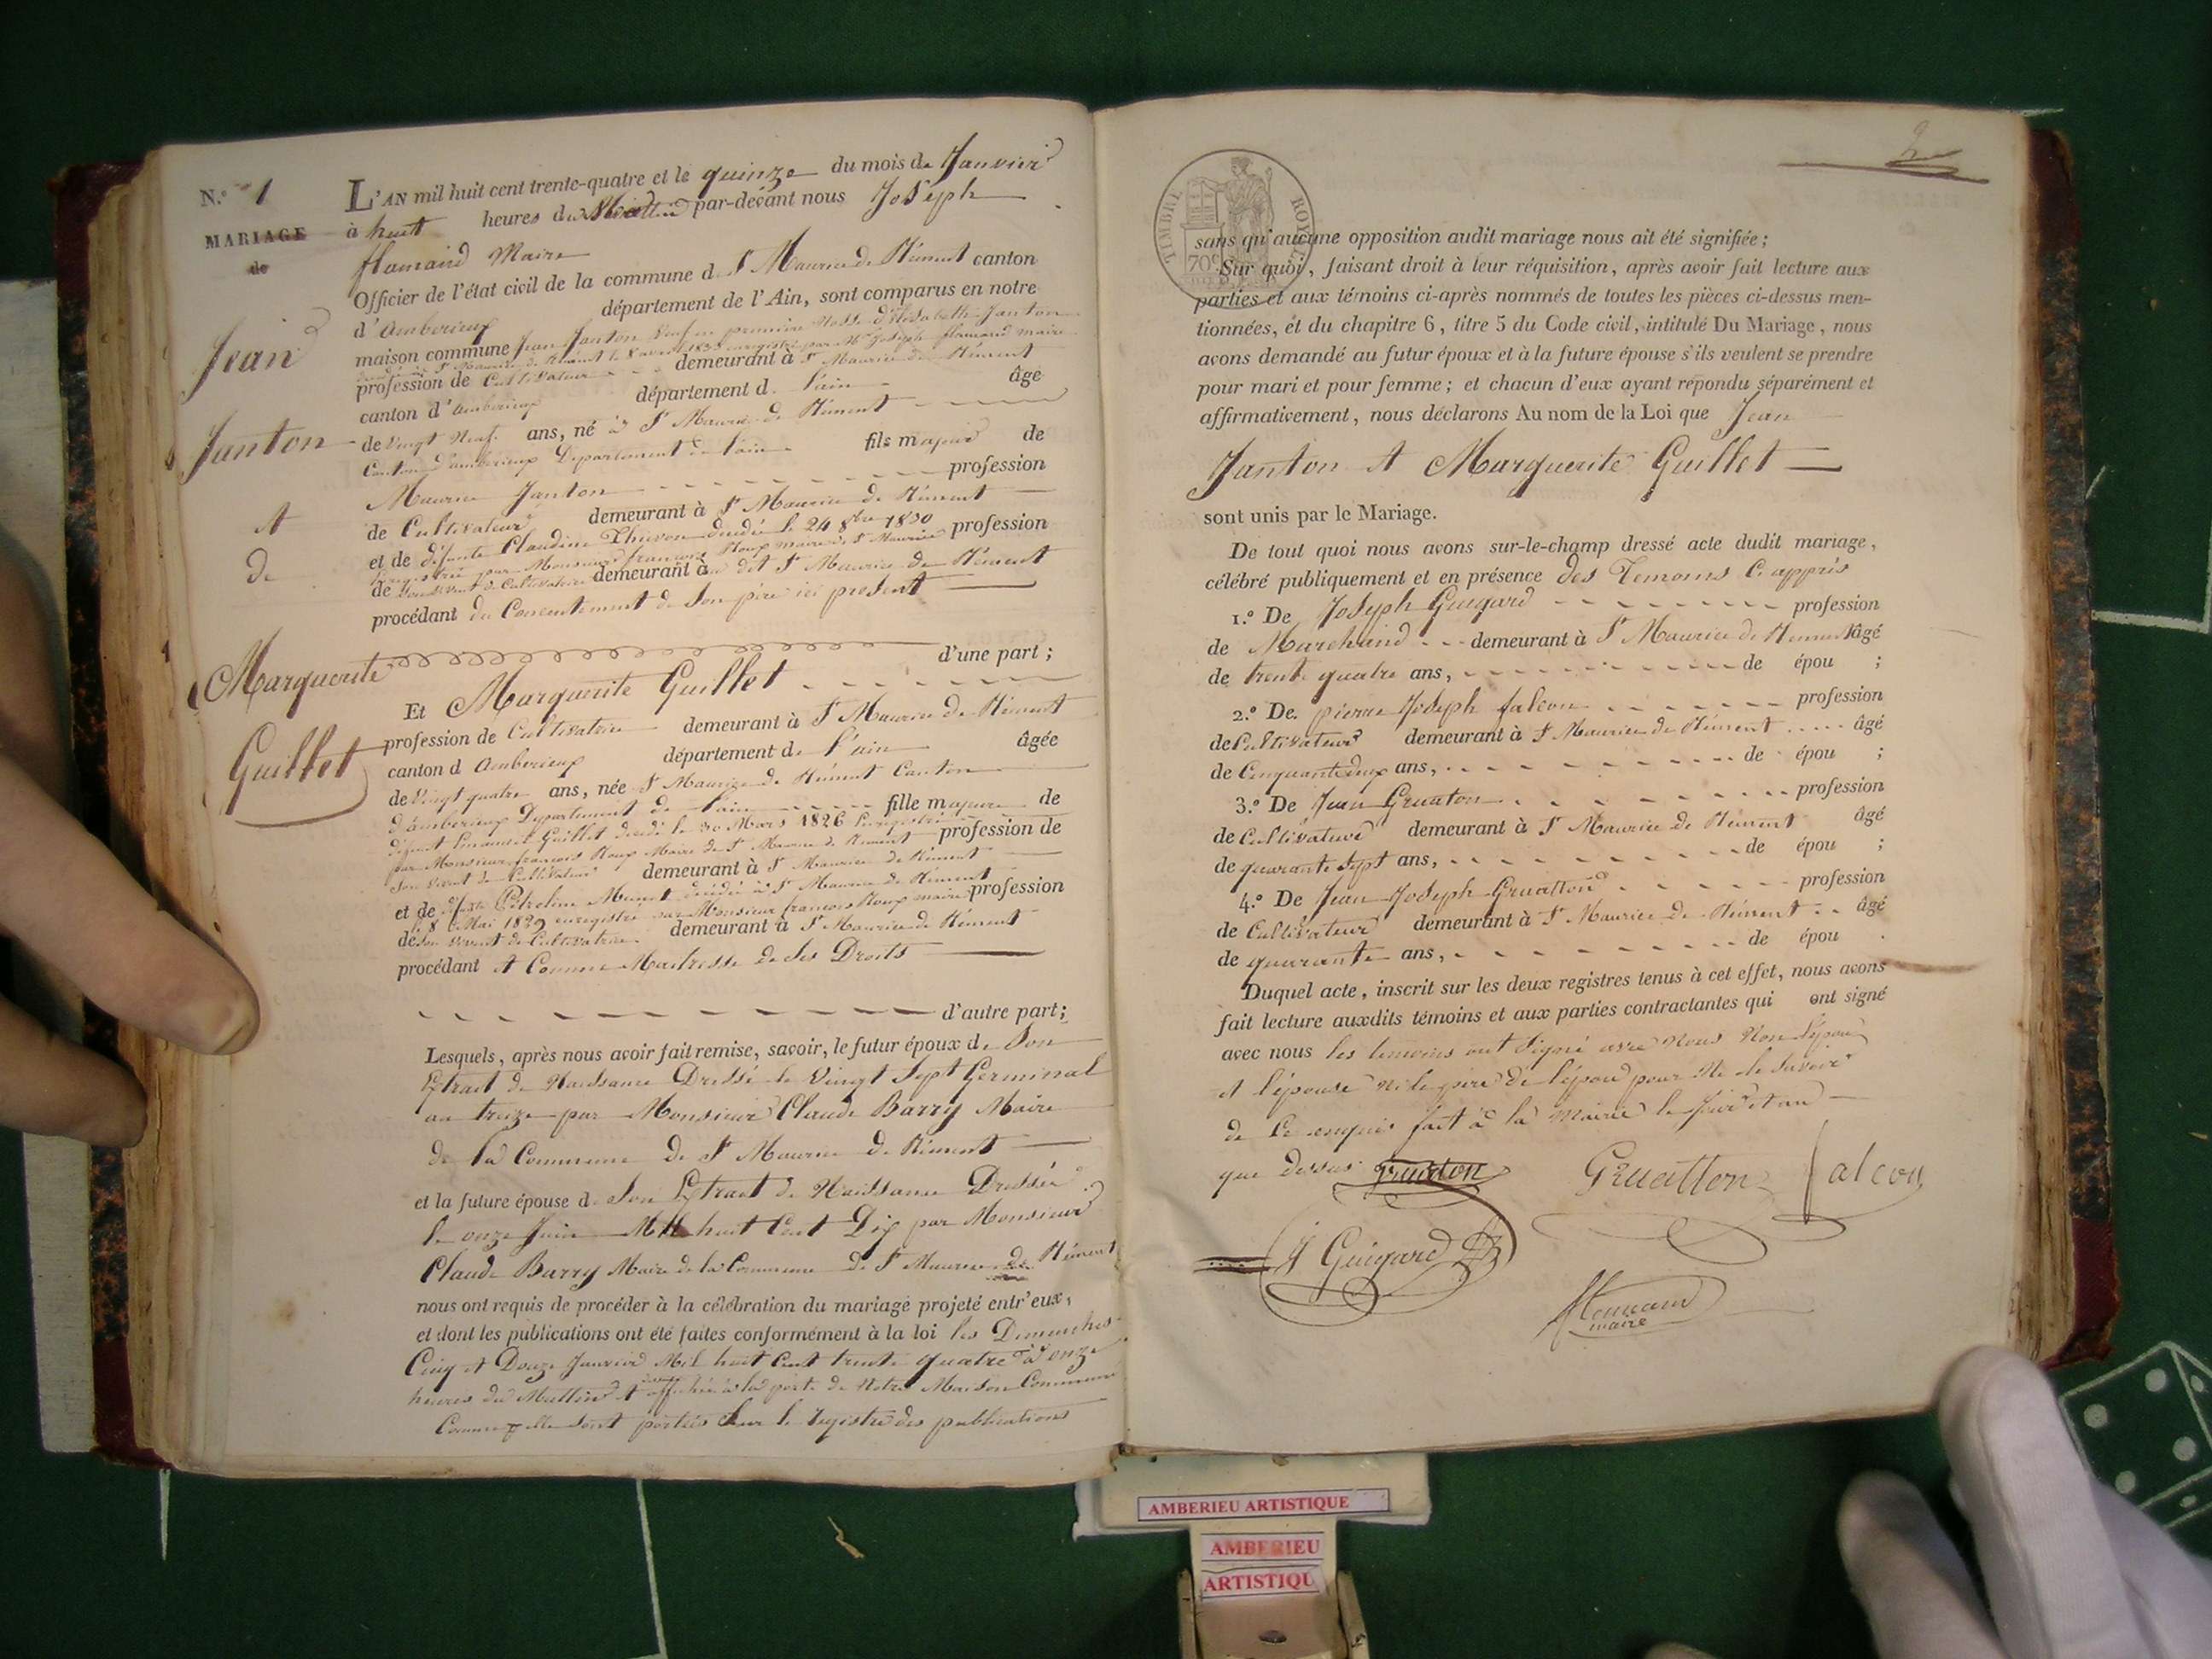 N.º 1
MARIAGE
de
Jean
Janton
et
de
Marguerite
Guillet
L'AN mil huit cent trente-quatre et le quinze du mois de Janvier
à huit heures du Mattin par-devant nous Joseph
flamand Maire
Officier de l'état civil de la commune d. St Maurice de Rément canton
d'amberieux département de l'Ain, sont comparus en notre
maison commune Jean Janton Veuf en première Nosse d'Elisabeth Janton
St Maurice de Rément le 8 avril 1833 enregistré par Mr Joseph flamand maire
profession de Cultivateur demeurant à St Maurice de Rément
canton d'amberieux département d. l'ain âge
de Vingt Neuf ans, né à St Maurice de Rément
Canton d'amberieux Département de l'ain fils majeur de
Maurice Janton profession
de Cultivateur demeurant à St Maurice de Rément
et de défunte Claudine Thievon décédée le 24 8bre 1830 profession
Enregistrée par Monsieur françois Roux maire de St Maurice
de Son vivent de Cultivatrice demeurant à dit St Maurice de Rément
procédant du Concentement de Son père ici présent
d'une part ;
Et Marguerite Guillet
profession de Cultivatrice demeurant à St Maurice de Rément
canton d amberieux département d. l'ain âgée
de Vingt quatre ans, née St Maurice de Rément Canton
d'amberieux Département de l'ain fille majeure de
défunt Guillet décédé le 30 Mars 1826 Enregistré
par Monsieur françois Roux Maire de St Maurice de Rément profession de
Son vivent de Cultivateur demeurant à St Maurice de Rément
et de défunte Pétroline Munet décédée à St Maurice de Rément
le 8 Mai 1829 enregistré par Monsieur françois Roux maire profession
de Son vivent de Cultivatrice demeurant à St Maurice de Rément
procédant et Comme Maitresse de Ses Droits
d'autre part ;
Lesquels, après nous avoir fait remise, savoir, le futur époux d. Son
Extrait de Naissance Dressé le Vingt Sept Germinal
an treize par Monsieur Claude Barry Maire
de la Commune de St Maurice de Rément
et la future épouse d. Son Extrait de Naissance Dressée
le onze Juin Mil huit Cent Dix par Monsieur
Claude Barry Maire de la Commune de St Maurice de Rément
nous ont requis de procéder à la célébration du mariage projeté entr'eux,
et dont les publications ont été faites conformément à la loi les Dimanches
Cinq et Douze Janvier Mil huit Cent trente quatre à onze
heures du Mattin et affichée à la porte de Notre Maison Commune
Comme elle sont portées Sur le registre des publications
2
TIMBRE ROYAL
70c
sans qu'aucune opposition audit mariage nous ait été signifiée ;
Sur quoi, faisant droit à leur réquisition, après avoir fait lecture aux
parties et aux témoins ci-après nommés de toutes les pièces ci-dessus men-
tionnées, et du chapitre 6, titre 5 du Code civil, intitulé Du Mariage, nous
avons demandé au futur époux et à la future épouse s'ils veulent se prendre
pour mari et pour femme ; et chacun d'eux ayant répondu séparément et
affirmativement, nous déclarons Au nom de la Loi que Jean
Janton et Marguerite Guillet
sont unis par le Mariage.
De tout quoi nous avons sur-le-champ dressé acte dudit mariage,
célébré publiquement et en présence des Temoins C. apprès
1.º De Joseph Guigard profession
de Marchand demeurant à St Maurice de Rément âgé
de trente quatre ans, de épou ;
2.º De. pierre Joseph falcon profession
de Cultivateur demeurant à St Maurice de Rément âgé
de Cinquante deux ans, de épou ;
3.º De Jean Gruaton profession
de Cultivateur demeurant à St Maurice de Rément âgé
de quarante Sept ans, de épou ;
4.º De Jean Joseph Gruatton profession
de Cultivateur demeurant à St Maurice de Rément âgé
de quarante ans, de épou .
Duquel acte, inscrit sur les deux registres tenus à cet effet, nous avons
fait lecture auxdits témoins et aux parties contractantes qui ont signé
avec nous les temoins ont Signé avec Nous Non l'époux
et l'épouse ni le père de l'époux pour Ne le Savoir
de Ce enquis fait à la Mairie le Jour et an
que dessus Gruaton Gruatton falcon
J Guigard
flamand
maire
AMBERIEU ARTISTIQUE
AMBERIEU
ARTISTIQU